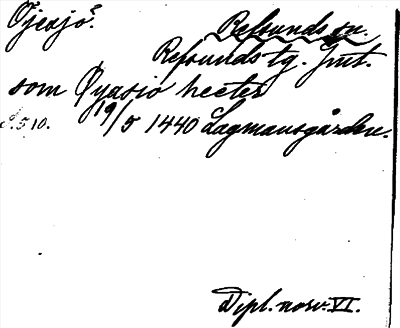 Öjersjö. Refsunds sn.
Refsunds tg. Jmt.
som Øyasio heeter
S. 510. 19/5 1440 Lagmansgården.
Dipl. norv. VI.